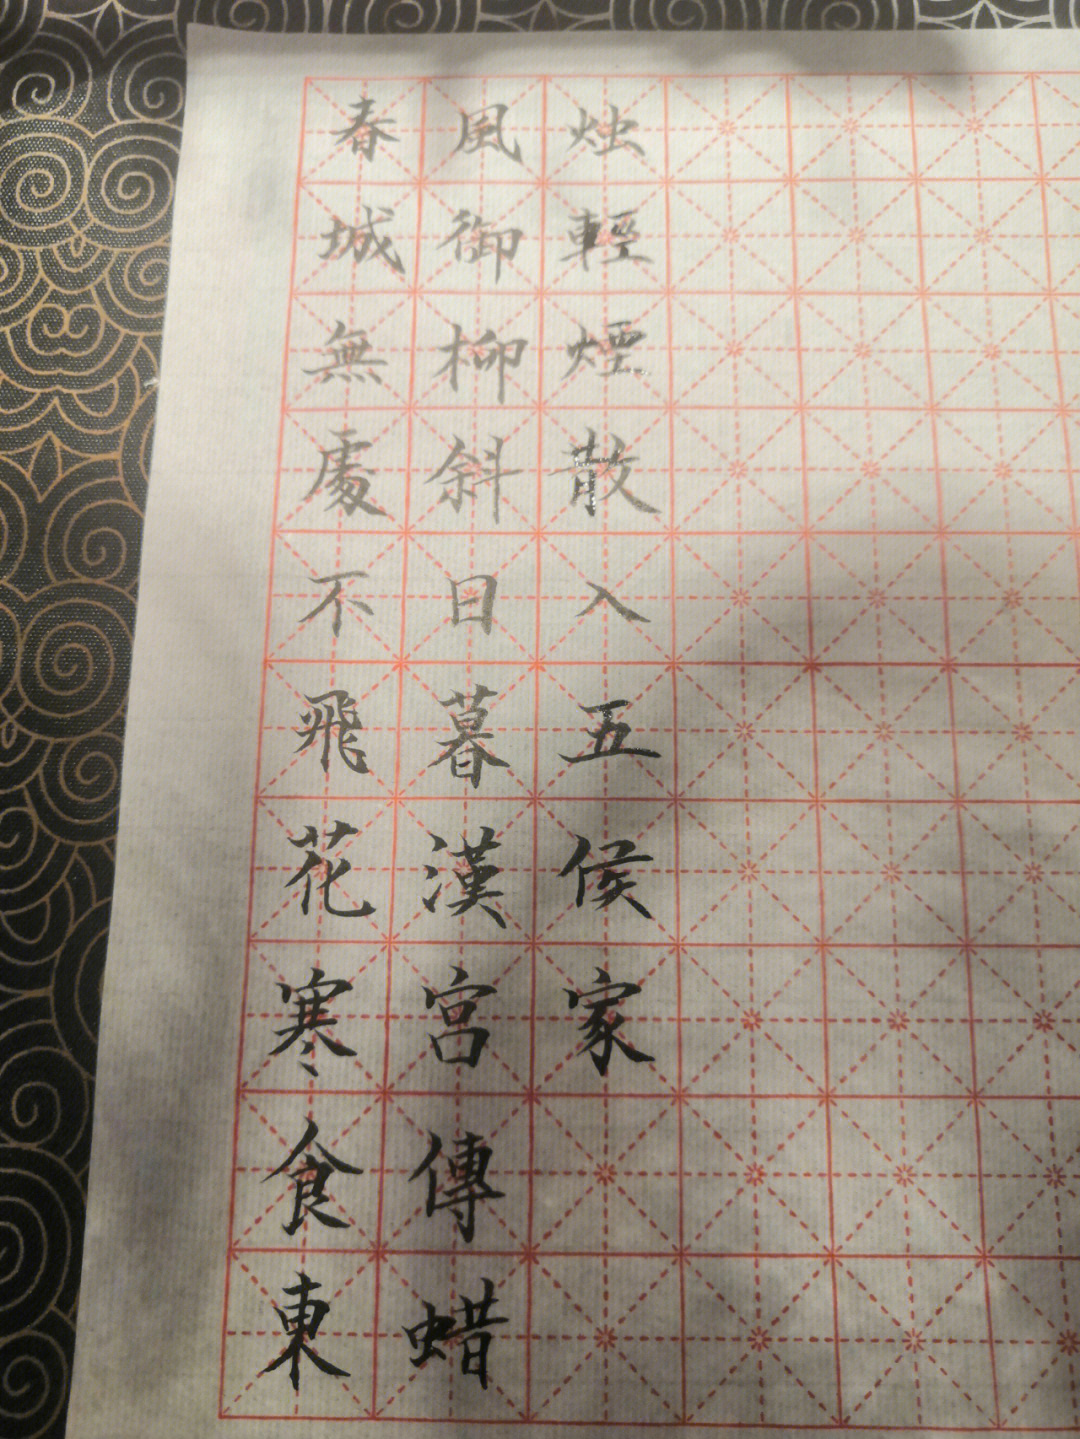 春城無處不飛花寒食東
風御柳斜日暮漢宮傳蜡
烛輕煙散入五侯家